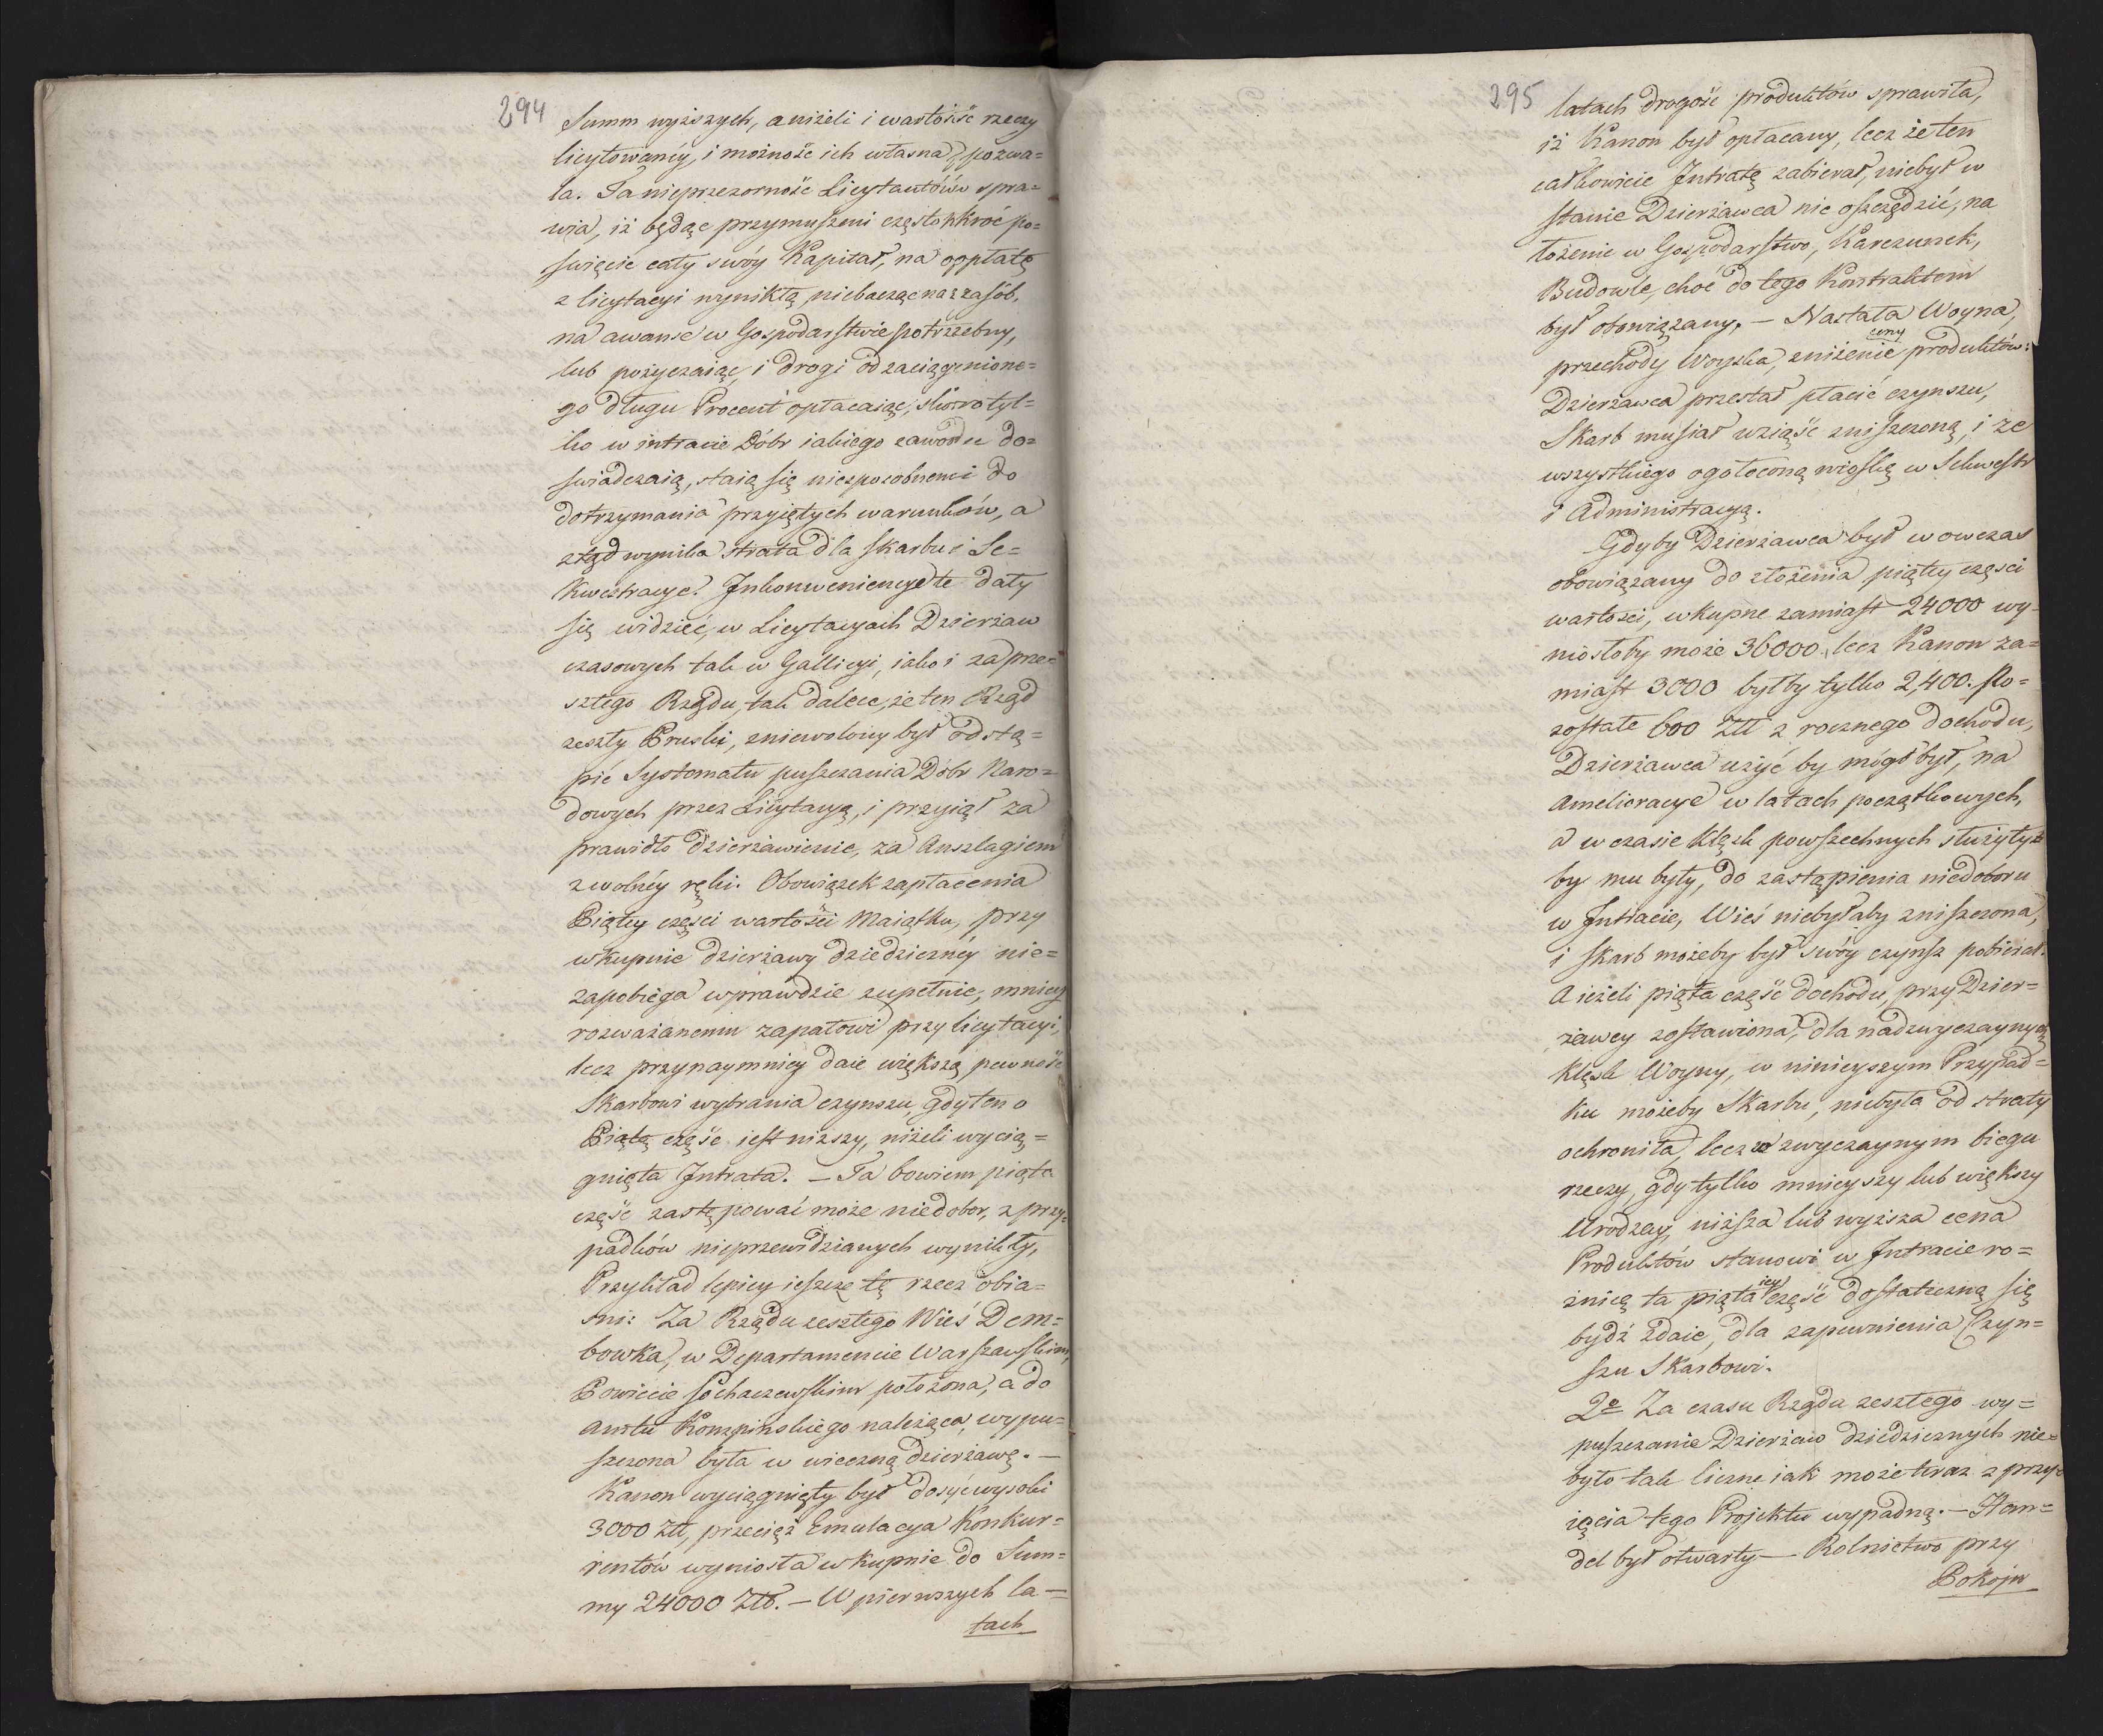 294
Summ wyższych, aniżeli i wartość rzeczy
licytowanéy, i możność ich własna pozwa=
la. Ta nieprzezorność Licytantów spra=
wia, iż będąc przymuszeni częstokroć po=
święcić cały swóy Kapitał, na opłatę
z licytacyi wynikłą, niebacząc na zasób,
na awanse w Gospodarstwie potrzebny,
lub pożyczaiąc, i drogi od zaciągnione=
go długu Procent opłacaiąc, skoro tyl=
ko w intracie Dóbr iakiego zawodu do=
świadczaią, staią się niesposobnemi do
dotrzymania przyiętych warunków, a
ztąd wynika strata dla skarbu i Se=
kwestracye. Inkonweniencye te dały
się widzieć, w Licytacyach Dzierżaw
czasowych tak w Gallicyi, iako i za prze=
szłego Rządu, tak dalece, że ten Rząd
zeszły Pruski, zniewolony był odstą=
pić Systematu puszczania Dóbr Naro=
dowych przez Licytacyą, i przyiął za
prawidło dzierżawienie, za Anszlagiem
z wolnéy ręki. Obowiązek zapłacenia
Piątey części wartości Maiątku, przy
wkupnie dzierżawy dziedzicznéy nie=
zapobiega wprawdzie zupełnie, mniey
rozważanemu zapałowi przy licytacyi,
lecz przynaymniey daie większą pewność
Skarbowi wybrania czynszu, gdy ten o
Piątą część iest niższy, niżeli wycią=
gnięta Intrata. – Ta bowiem piąta
część zastępować może niedobor, z przy=
padków nieprzewidzianych wynikły,
Przykład lepiey ieszcze tę rzecz obia=
śni: Za Rządu zeszłego Wieś Dem=
bowka, w Departamencie Warszawskim,
Powiecie Sochaczewskim położona, a do
Amtu Kompińskiego należąca, wypu=
szczona była w wieczną dzierżawę. –
Kanon wyciągnięty był dosyć wysoki
3000 Złł, przecięż Emulacya Konkur=
rentów wyniosła wkupnie do Sum=
my 24000 Złł. – W pierwszych la=
tach
295
latach drogość produktów sprawiła,
iż Kanon był opłacany, lecz że ten
całkowicie Intratę zabierał, niebył w
stanie Dzierżawca nic oszczędzić, na
łożenie w Gospodarstwo, Karczunek,
Budowle, choć do tego Kontraktem
był obowiązany. – Nastała Woyna,
przechody Woyska, zniżenie ceny produktów:
Dzierżawca przestał płacić czynszu,
Skarb musiał wziąść zniszczoną, i ze
wszystkiego ogołoconą wioskę w Sekwestr
i Administracyą.
Gdyby Dzierżawca był wowczas
obowiązany do złożenia piątey części
wartości, wkupne zamiast 24000 wy-
niosłoby może 36000. lecz Kanon za=
miast 3000 byłby tylko 2,400. Po=
zostałe 600 Złł z rocznego dochodu,
Dzierżawca użyć by mógł był, na
Amelioracye w latach początkowych,
a w czasie klęsk powszechnych służyły=
by mu były, do zastąpienia niedoboru
w Intracie, Wieś niebyłaby zniszczona,
i skarb możeby był swóy czynsz pobierał.
A ieżeli piąta część dochodu, przy Dzier=
żawcy zostawiona, dla nadzwyczaynych
klęsk Woyny, w ninieyszym Przypad=
ku możeby Skarbu, niebyła od straty
ochroniła, lecz w zwyczaynym biegu
rzeczy, gdy tylko mnieyszy lub większy
Urodzay, niższa lub wyższa cena
Produktów stanowi w Intracie ro=
żnicę ta piąta iey część dostateczną się
bydź zdaie, dla zapewnienia Czyn=
szu Skarbowi.
2o Za czasu Rządu zeszłego wy=
puszczanie Dzierżaw dziedzicznych nie=
było tak liczne iak może teraz z przy=
ięcia tego Projektu wypadną. – Han=
del był otwarty – Rolnictwo przy
Pokoju